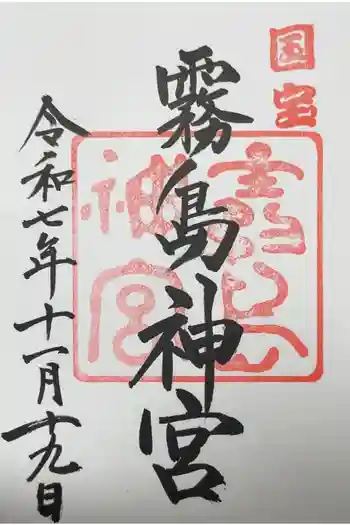 国宝
霧島神宮
霧島神宮
令和七年十一月十九日